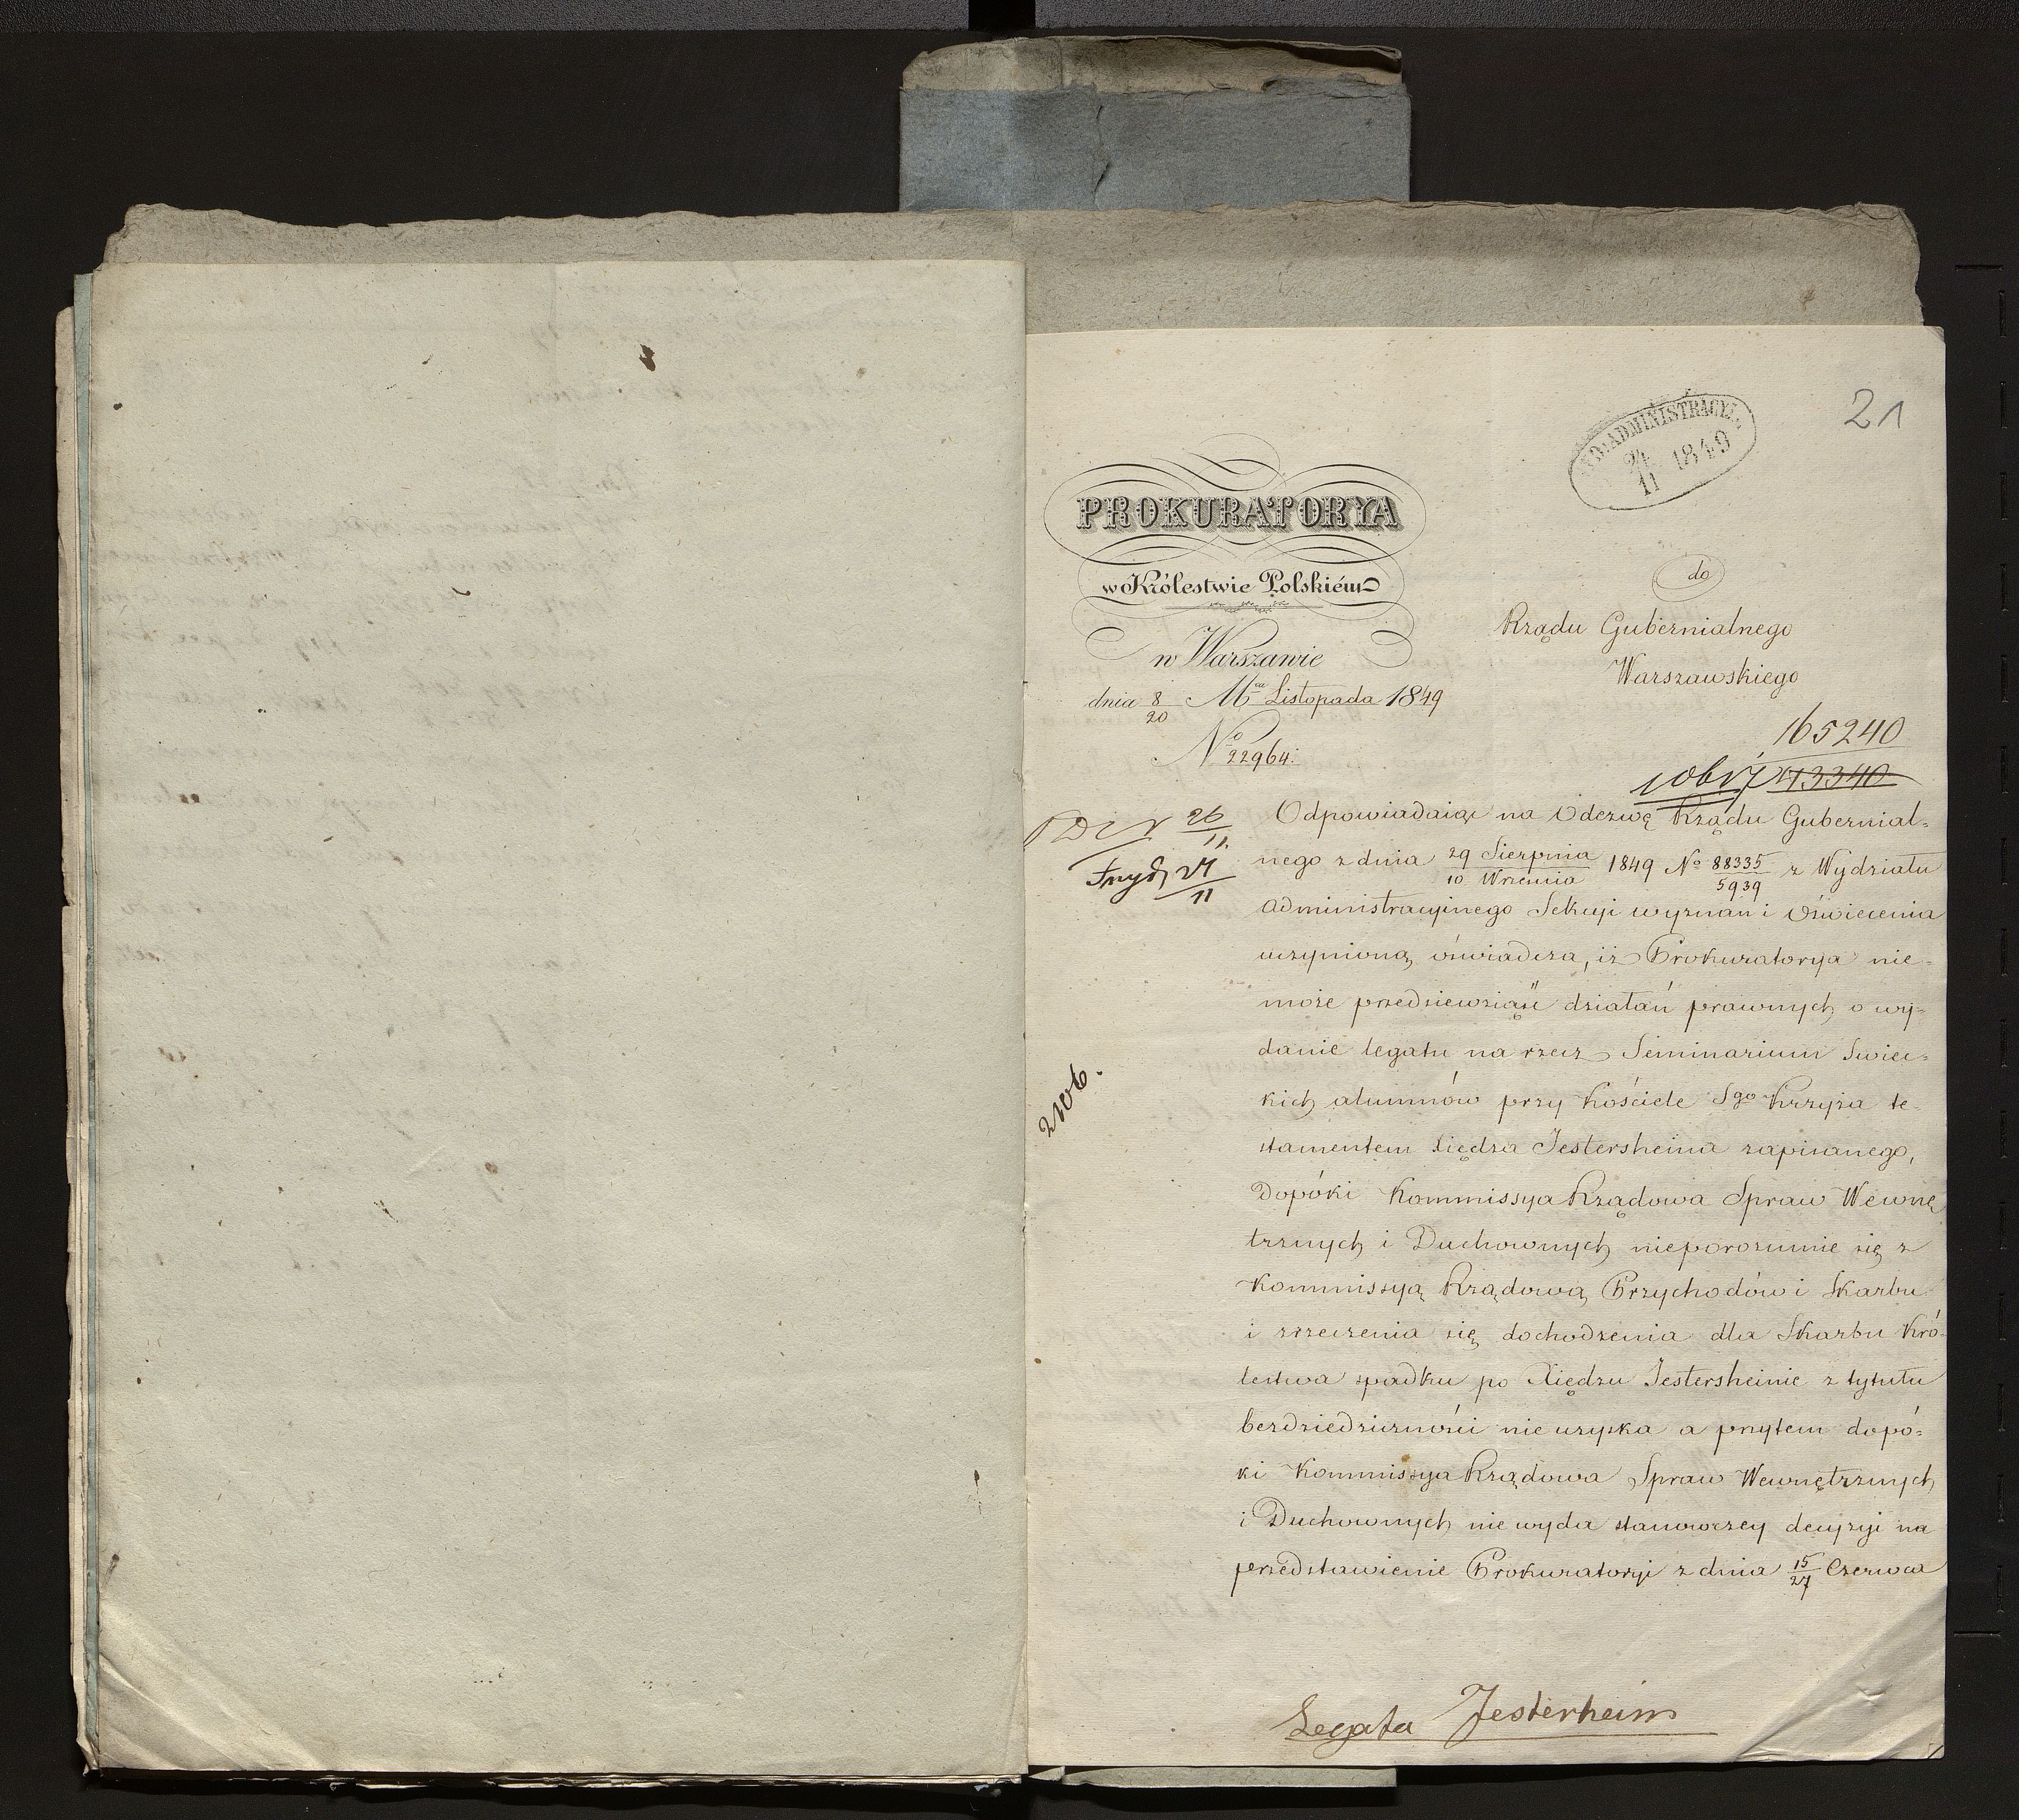 21
WYD: ADMINISTRACYI
24/11 1849
PROKURATORYA
w Królestwie Polskiém
w Warszawie
dnia 8/20 Mca Listopada 1849
No 22964.
do
Rządu Gubernialnego
Warszawskiego
165240
43340
26/11.
24/11
2106.
Odpowiadaiąc na Odezwę Rządu Gubernial=
nego z dnia 29 Sierpnia/10 Września 1849 No 88335/5939 z Wydziału
Administracyinego Sekcyi wyznań i Oświecenia
uczynioną, oświadcza, iż Prokuratorya nie=
może przedsiewziąść działań prawnych o wy=
danie legatu na rzecz Seminarium Swiec=
kich alumnów przy kościele Sgo Krzyża te=
stamentem Xiędza Jestersheina zapisanego,
dopóki Kommissya Rządowa Spraw Wewnę
trznych i Duchownych nieporozumie się z
Kommissyą Rządową Przychodów i Skarbu
i zrzeczenia się dochodzenia dla Skarbu Kró=
lestwa spadku po Xiędzu Jestersheinie z tytułu
bezdziedziczności nie uzyska a przytem dopó=
ki Kommissya Rządowa Spraw Wewnętrznych
i Duchownych nie wyda stanowczey decyzyi na
przedstawienie Prokuratoryi z dnia 15/27 Czerwca
Legata Jesterheim